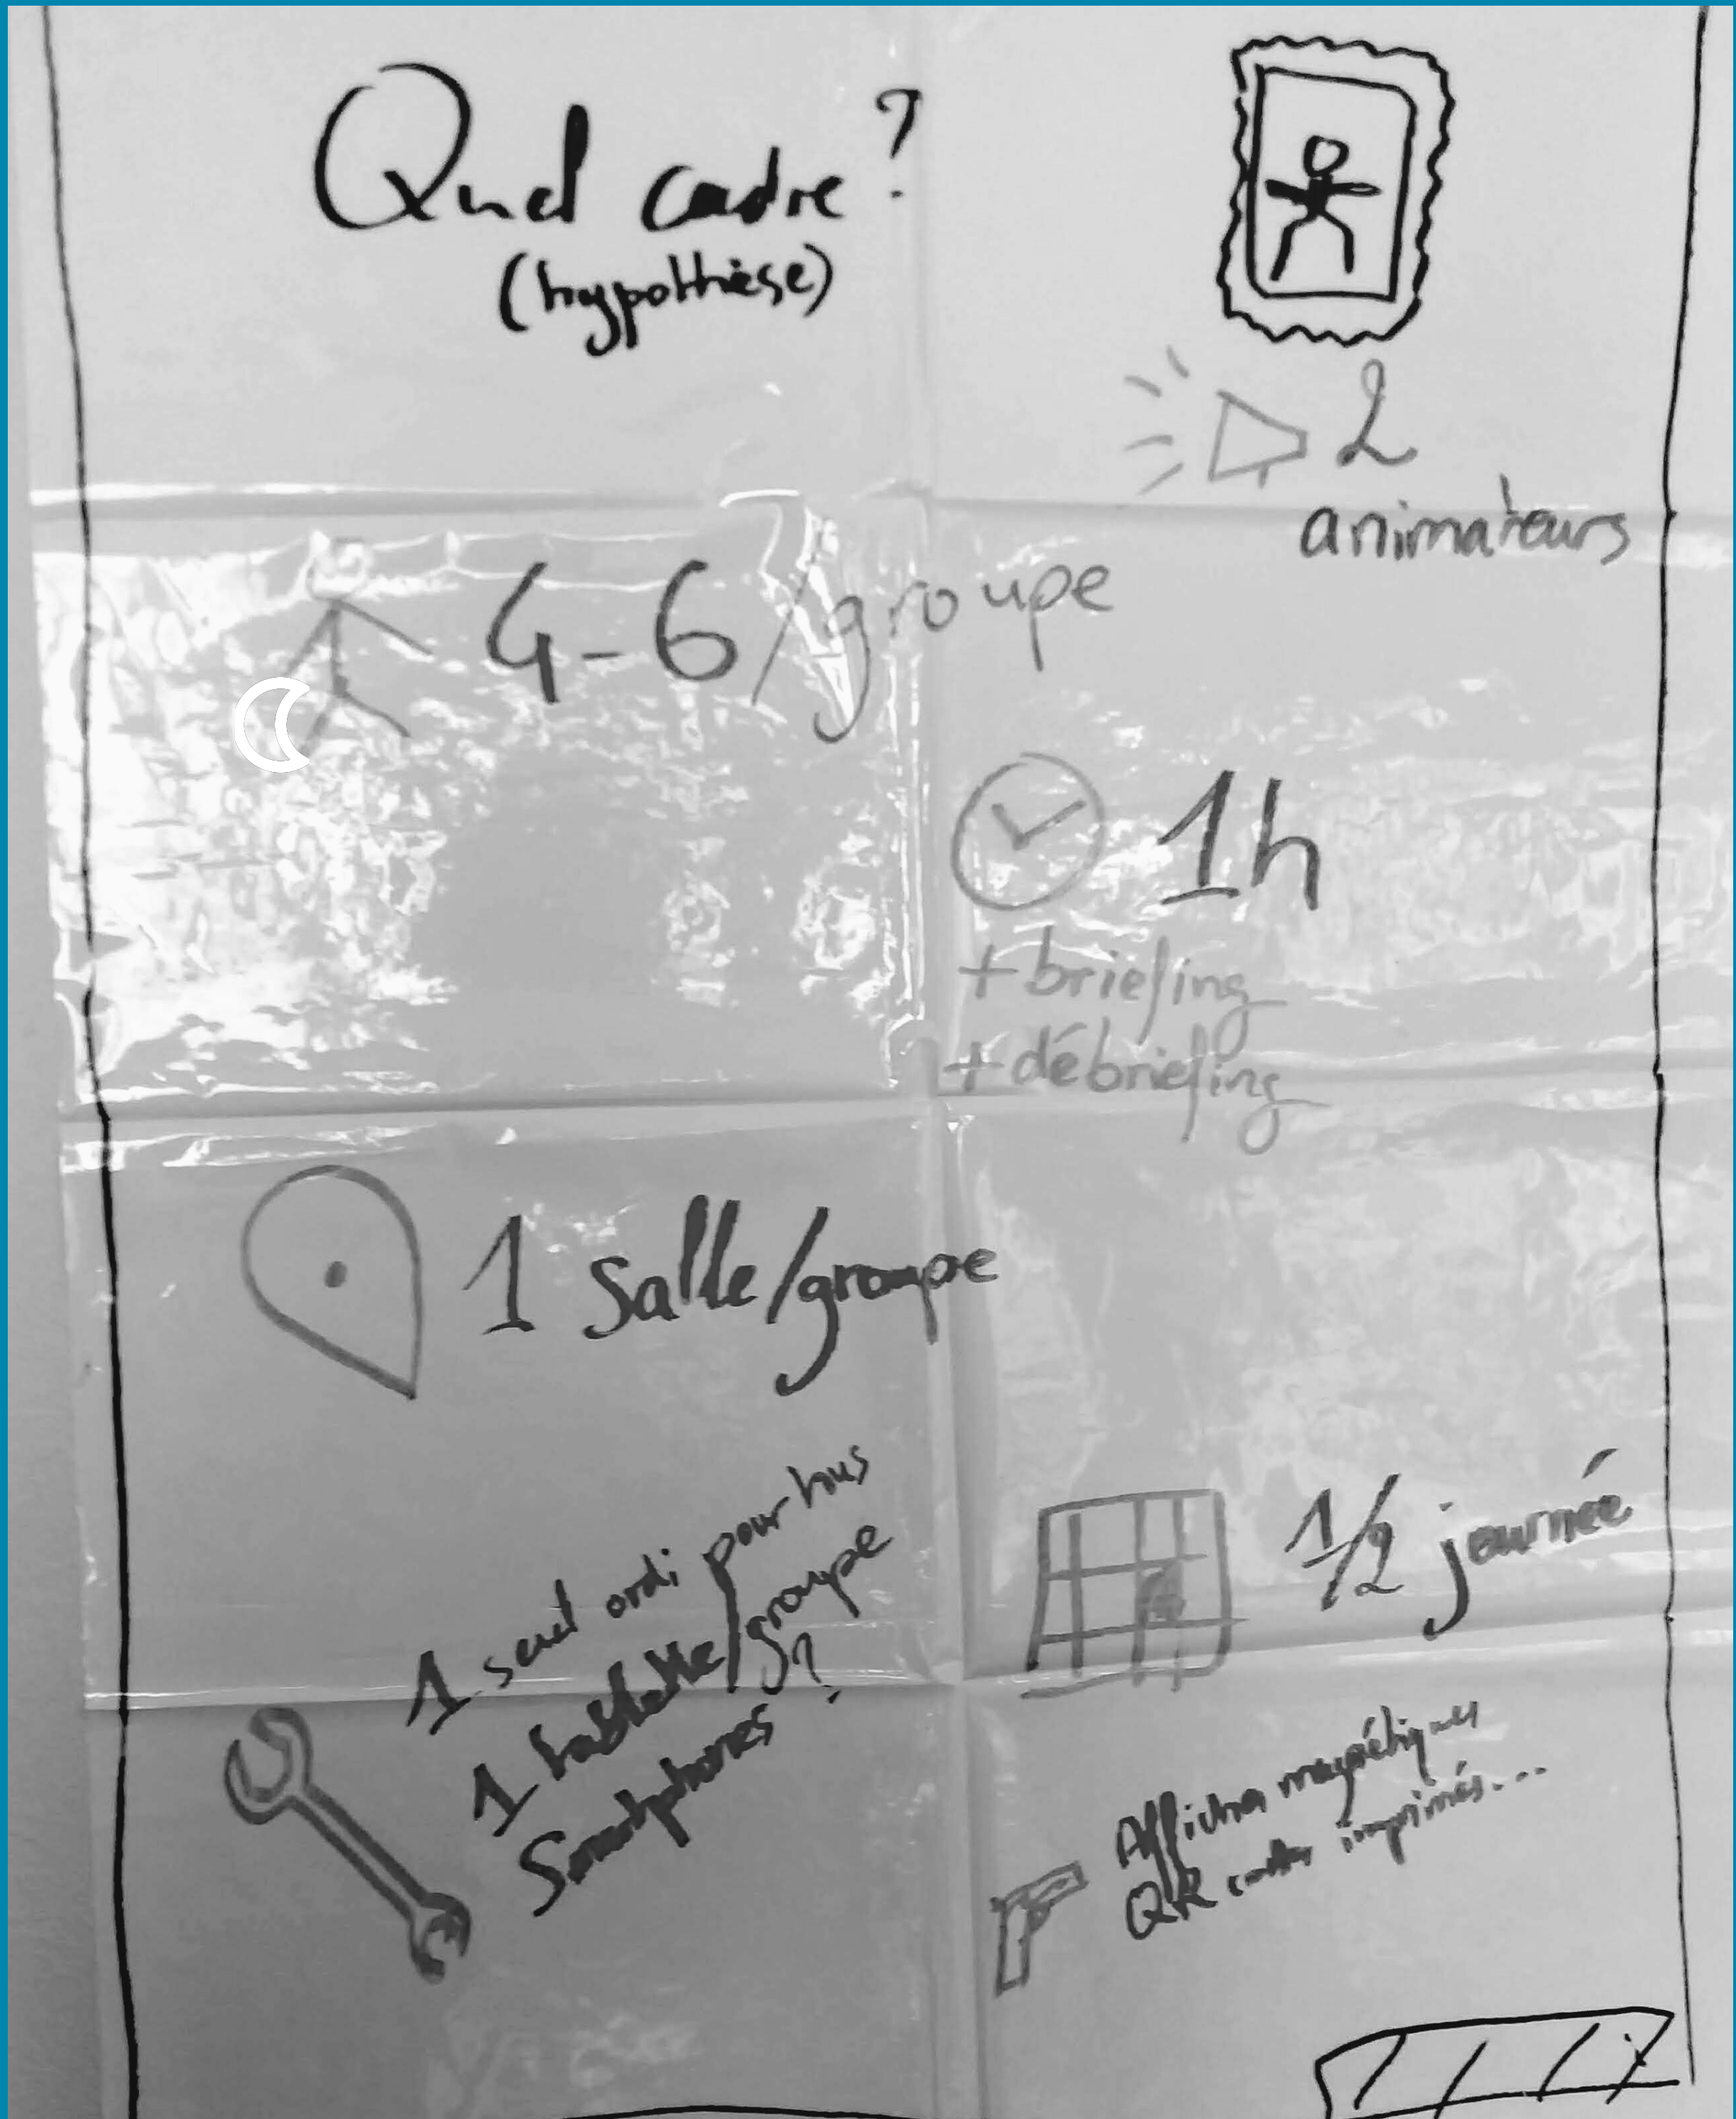 Quel cadre ?
(hypothèse)
2
animateurs
4-6/groupe
1h
+ briefing
+ débriefing
1 Salle/groupe
1 seul ordi pour tous
1 tablette/groupe
Smartphones ?
1/2 journée
Affiches magnétiques
QR codes imprimés...